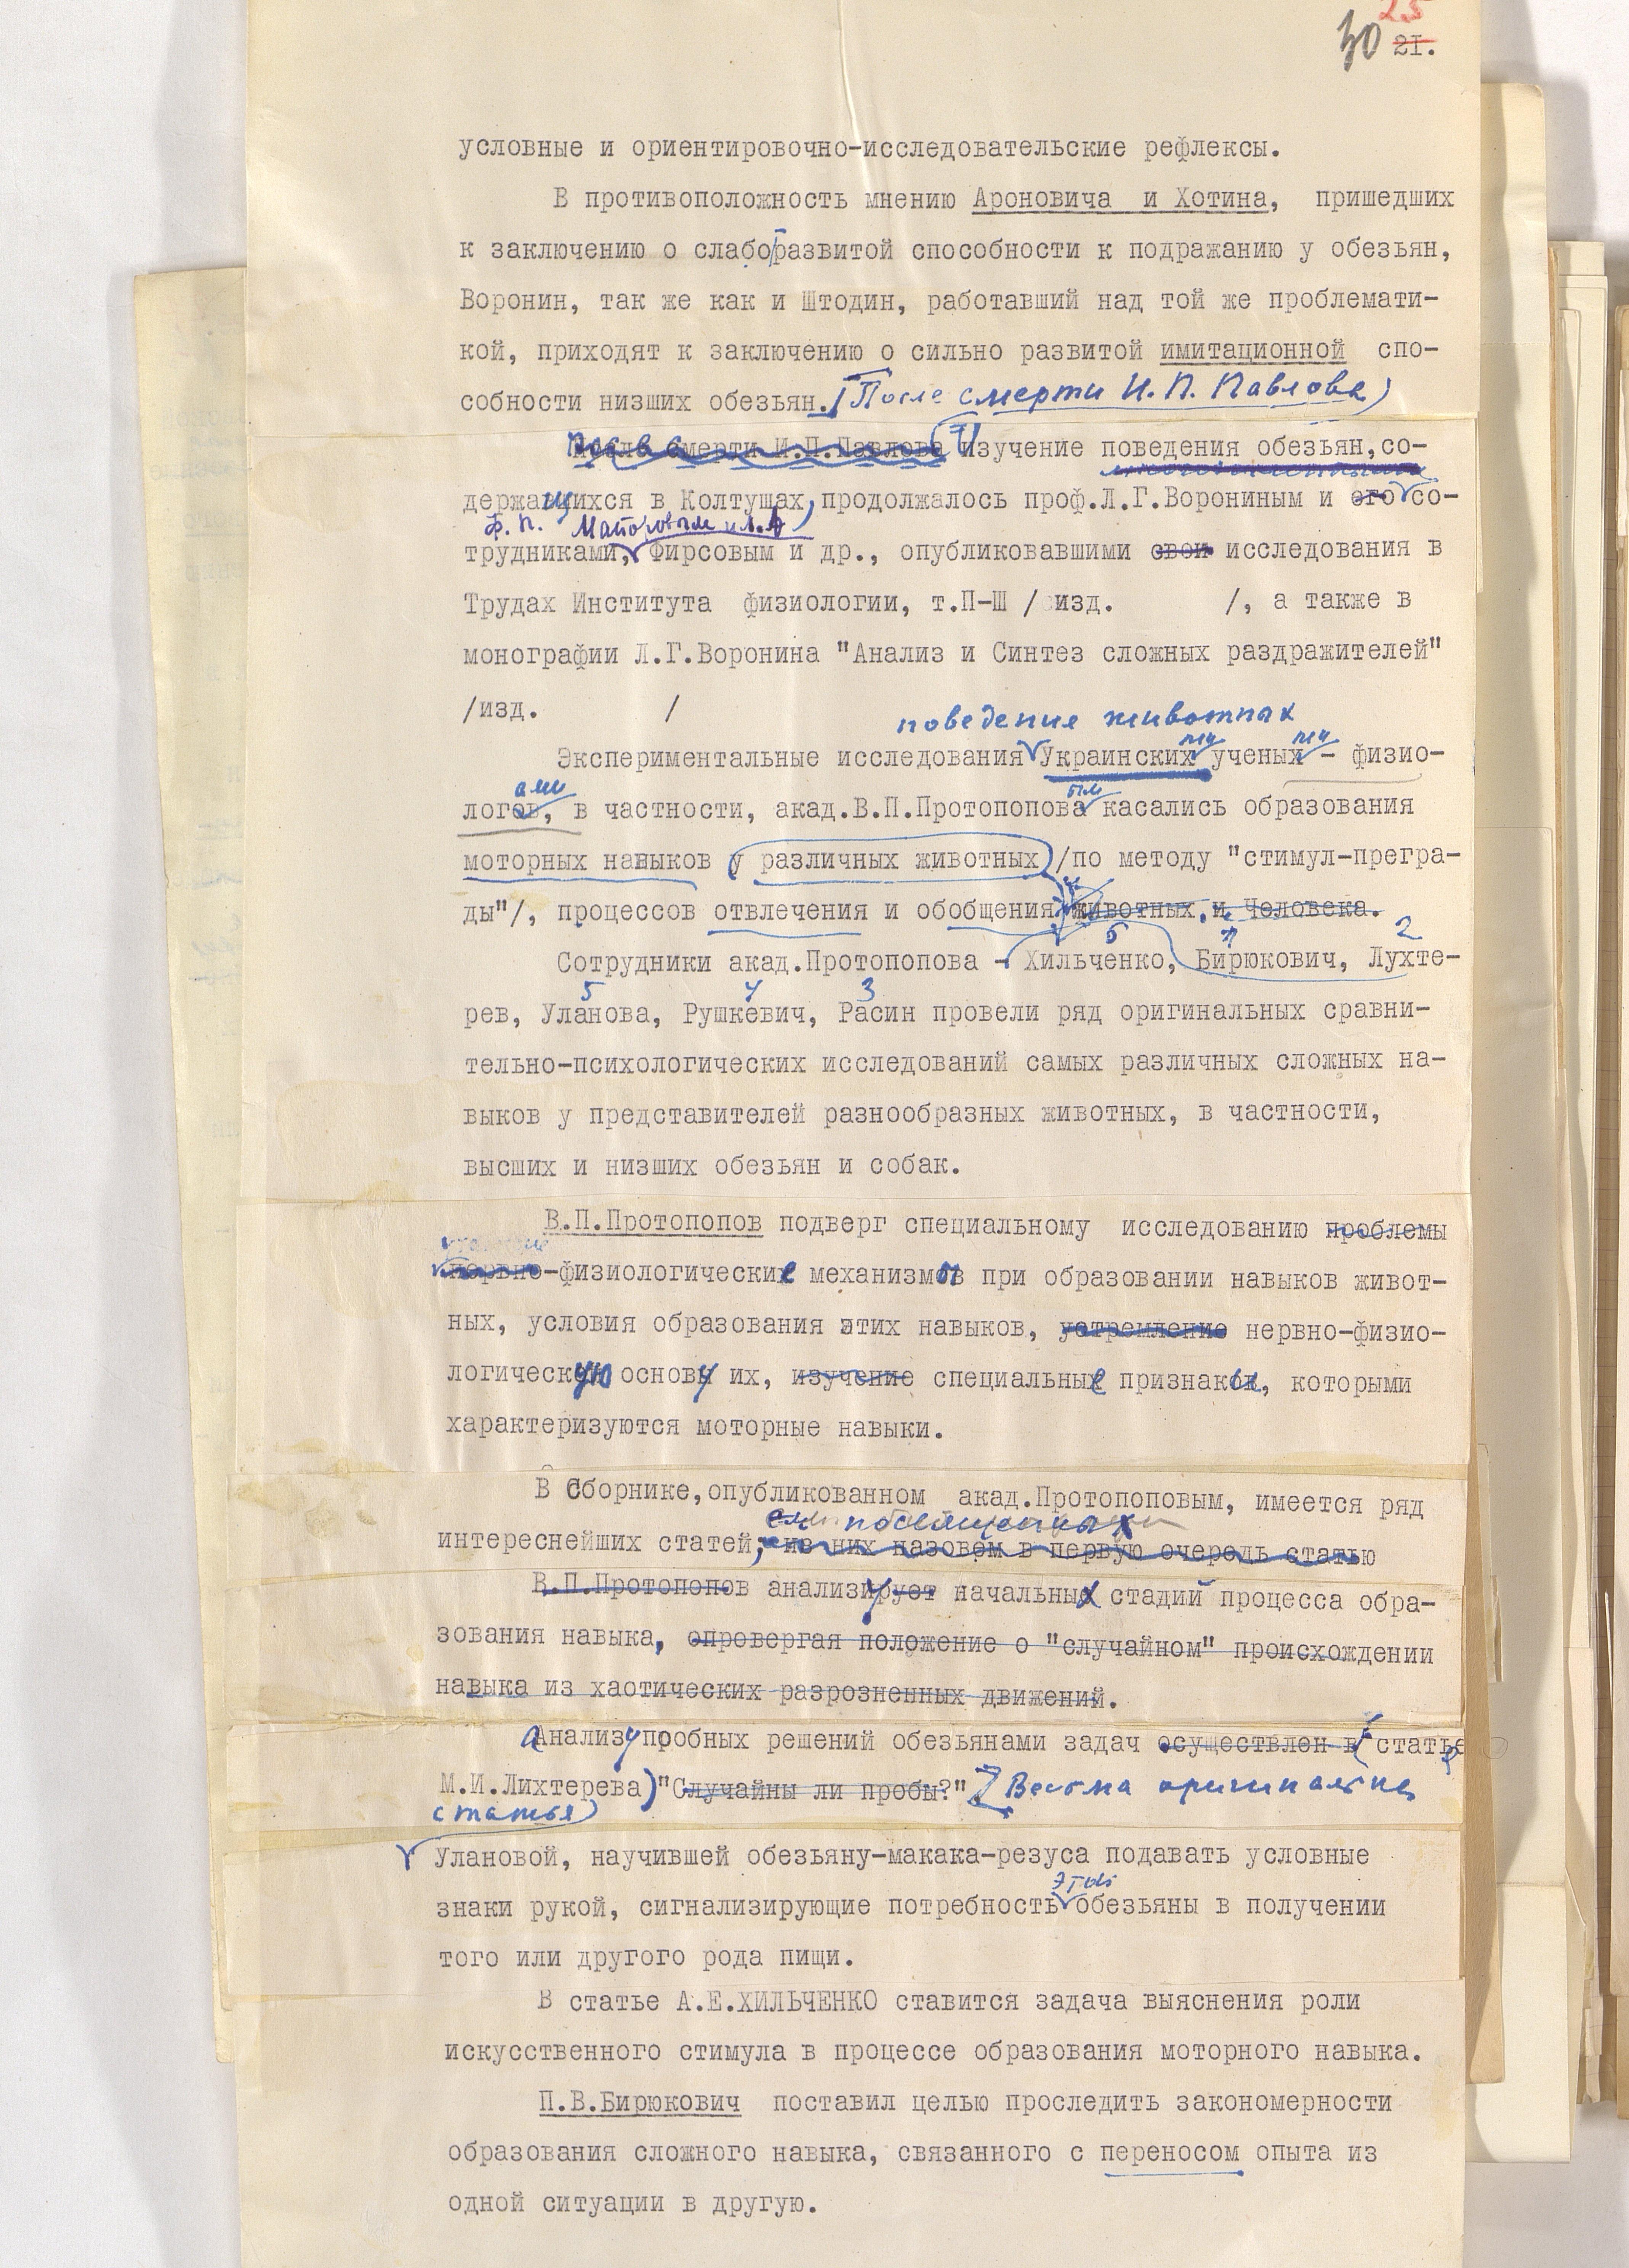 25
30 21.
условные и ориентировочно-исследовательские рефлексы.
В противоположность мнению Ароновича и Хотина, пришедших
к заключению о слабо развитой способности к подражанию у обезьян,
Воронин, так же как и Штодин, работавший над той же проблемати-
кой, приходят к заключению о сильно развитой имитационной спо-
собности низших обезьян. (После смерти И. П. Павлова)
После смерти И.П.Павлова Изучение поведения обезьян, со-
держащихся в Колтушах, продолжалось проф.Л.Г.Ворониным и его со-
Ф. П. Майоровым и Л.А
трудниками, Фирсовым и др., опубликовавшими свои исследования в
Трудах Института физиологии, т.П-Ш / изд. /, а также в
монографии Л.Г.Воронина "Анализ и Синтез сложных раздражителей"
/изд. /
поведение животных
Экспериментальные исследования Украинских ученых - физио-
ами ым
логов, в частности, акад.В.П.Протопопова касались образования
моторных навыков у различных животных /по методу "стимул-прегра-
ды"/, процессов отвлечения и обобщения животных, и человека.
6 2
Сотрудники акад.Протопопова - Хильченко, Бирюкович, Лухте-
5 4 3
рев, Уланова, Рушкевич, Расин провели ряд оригинальных сравни-
тельно-психологических исследований самых различных сложных на-
выков у представителей разнообразных животных, в частности,
высших и низших обезьян и собак.
В.П.Протопопов подверг специальному исследованию проблемы
нервно-физиологические механизмы при образовании навыков живот-
ных, условия образования этих навыков, устремление нервно-физио-
логическую основу их, изучение специальные признаки, которыми
характеризуются моторные навыки.
В Сборнике, опубликованном акад.Протопоповым, имеется ряд
посвященных
интереснейших статей, из них назовем в первую очередь статью
В.П.Протопопов анализирует начальных стадий процесса обра-
зования навыка, опровергая положение о "случайном" происхождении
навыка из хаотических разрозненных движений.
Анализу пробных решений обезьянами задач осуществлен в (статье
М.И.Лихтерева) "Случайны ли пробы?" Весьма оригинальна
статья
Улановой, научившей обезьяну-макака-резуса подавать условные
этой
знаки рукой, сигнализирующие потребность обезьяны в получении
того или другого рода пищи.
В статье А.Е.ХИЛЬЧЕНКО ставится задача выяснения роли
искусственного стимула в процессе образования моторного навыка.
П.В.Бирюкович поставил целью проследить закономерности
образования сложного навыка, связанного с переносом опыта из
одной ситуации в другую.